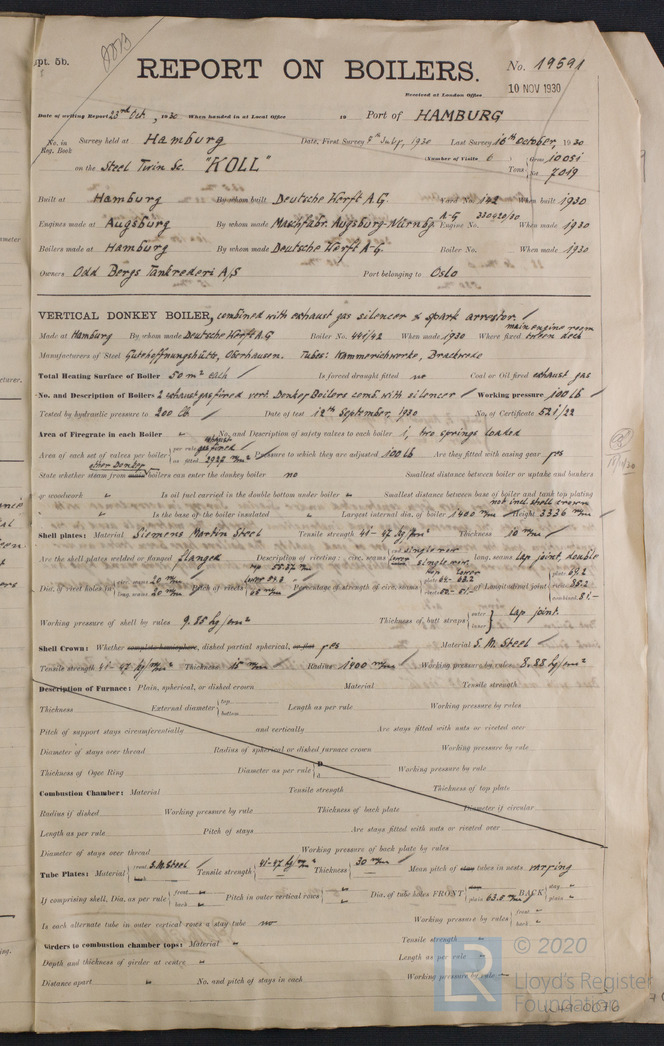 pt. 5b.
REPORT ON BOILERS.
No. 19591
10 NOV 1930
Received at London Office
Date of writing Report 23rd Oct, 1930 When handed in at Local Office 19 Port of HAMBURG
No. in Reg. Book Survey held at Hamburg Date, First Survey 7th July, 1930 Last Survey 16th October, 1930
(Number of Visits 6)
on the Steel Twin Sc. "KOLL" Tons Gross 10051 Net 7019
Built at Hamburg By whom built Deutsche Werft A.G. Yard No. 142 When built 1930
Engines made at Augsburg By whom made Maschfabr. Augsburg-Nürnbg A-G Engine No. 330420/30 When made 1930
Boilers made at Hamburg By whom made Deutsche Werft A-G. Boiler No. When made 1930
Owners Odd Bergs Tankrederi A/S Port belonging to Oslo
VERTICAL DONKEY BOILER, combined with exhaust gas silencer & spark arrestor.
Made at Hamburg By whom made Deutsche Werft A.G Boiler No. 441/42 When made 1930 Where fixed main engine room tween deck
Manufacturers of Steel Gutehoffnungshütte, Oberhausen. Tubes: Kammerichwerke, Brackwede
Total Heating Surface of Boiler 50 m² each Is forced draught fitted no Coal or Oil fired exhaust gas
No. and Description of Boilers 2 exhaust gas fired vert. Donkey Boilers comb. with silencer Working pressure 100 lb
Tested by hydraulic pressure to 200 lb Date of test 12th September, 1930 No. of Certificate 521/22
Area of Firegrate in each Boiler No. and Description of safety valves to each boiler 1, two springs loaded
Area of each set of valves per boiler per rule exhaust gas fired as fitted 2927 m/m² Pressure to which they are adjusted 100 lb Are they fitted with easing gear yes
State whether steam from main other Donkey boilers can enter the donkey boiler no Smallest distance between boiler or uptake and bunkers
or woodwork Is oil fuel carried in the double bottom under boiler Smallest distance between base of boiler and tank top plating
Is the base of the boiler insulated Largest internal dia. of boiler 1400 m/m Height 3336 m/m not incl. shell crown
Shell plates: Material Siemens Martin Steel Tensile strength 41-47 kg/mm² Thickness 10 m/m
Are the shell plates welded or flanged flanged Description of riveting: circ. seams end single riv. lower single riv. long. seams Lap joint, double
Dia. of rivet holes in circ. seams 20 m/m long. seams 20 m/m Pitch of rivets Percentage of strength of circ. seams of Longitudinal joint
Working pressure of shell by rules 9.85 kg/cm² Thickness of butt straps outer inner Lap joint.
Shell Crown: Whether complete hemisphere, dished partial spherical, or flat yes Material S. M. Steel
Tensile strength 41-47 kg/mm² Thickness 15 m/m Radius 1400 m/m Working pressure by rules 8.88 kg/cm²
Description of Furnace: Plain, spherical, or dished crown Material Tensile strength
Thickness External diameter top bottom Length as per rule Working pressure by rules
Pitch of support stays circumferentially and vertically Are stays fitted with nuts or riveted over
Diameter of stays over thread Radius of spherical or dished furnace crown Working pressure by rule
Thickness of Ogee Ring Diameter as per rule D d Working pressure by rule
Combustion Chamber: Material Tensile strength Thickness of top plate
Radius if dished Working pressure by rule Thickness of back plate Diameter if circular
Length as per rule Pitch of stays Are stays fitted with nuts or riveted over
Diameter of stays over thread Working pressure of back plate by rules
Tube Plates: Material front back S.M.Steel Tensile strength 41-47 kg/mm² Thickness 30 m/m Mean pitch of stay tubes in nests varying
If comprising shell, Dia. as per rule front back Pitch in outer vertical rows Dia. of tube holes FRONT stay plain 63.8 m/m BACK stay plain
Is each alternate tube in outer vertical rows a stay tube no Working pressure by rules front back
Girders to combustion chamber tops: Material Tensile strength
Depth and thickness of girder at centre Length as per rule
Distance apart No. and pitch of stays in each Working pressure by rule
LR
© 2020
Lloyd's Register
Foundation